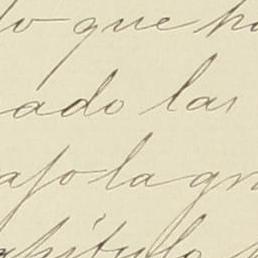 lo que h
ado las
apo la gr
apítulo